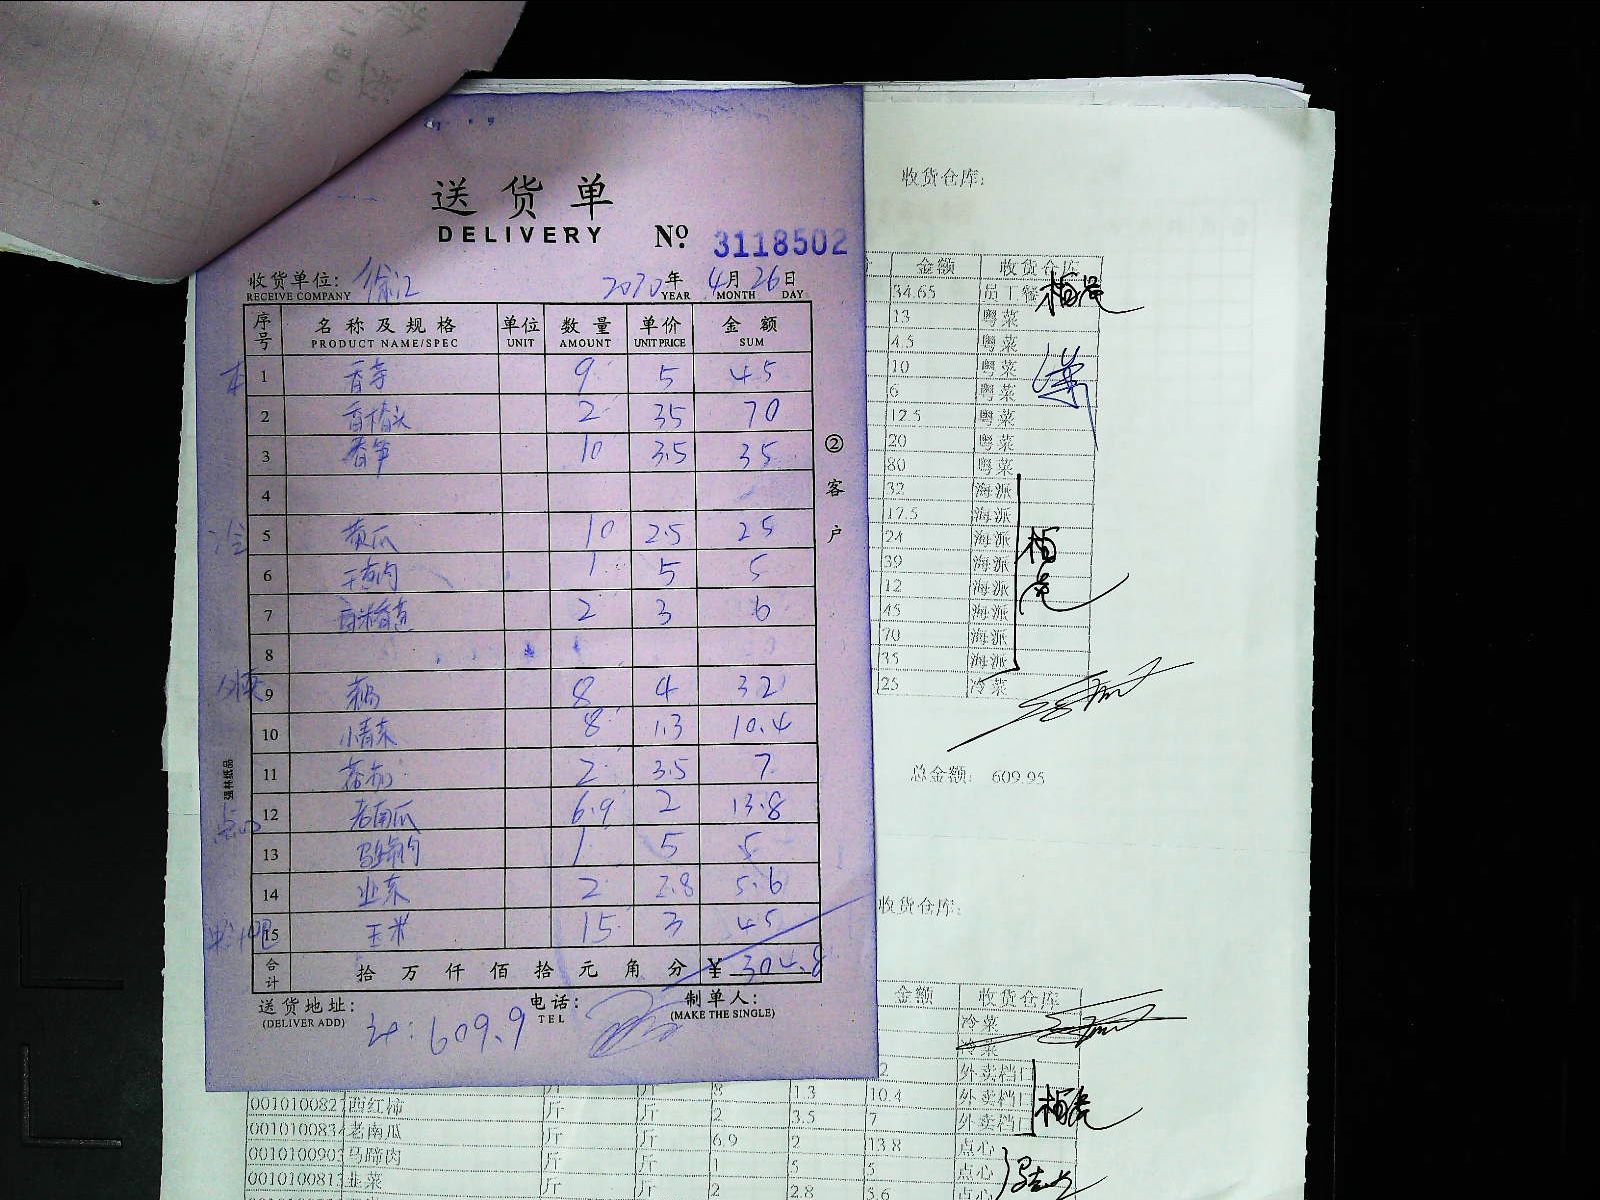 送货单
DELIVERY
№ 3118502
收货单位: 徐汇 2020年 4月 26日
RECEIVE COMPANY YEAR MONTH DAY
序号 名称及规格 单位 数量 单价 金额
PRODUCT NAME/SPEC UNIT AMOUNT UNIT PRICE SUM
1 香芋 9 5 45
2 香椿头 2 35 70
3 春笋 10 3.5 35
4
冷 5 黄瓜 10 2.5 25
6 1 5 5
7 2 3 6
8
外卖 9 8 4 32
10 小青菜 8 1.3 10.4
11 2 3.5 7
点心 12 老南瓜 6.9 2 13.8
13 马蹄肉 1 5 5
14 韭菜 2 2.8 5.6
15 玉米 15 3 45
合计 拾 万 仟 佰 拾 元 角 分 ¥ 304.8
送货地址: 电话: 制单人:
(DELIVER ADD) TEL (MAKE THE SINGLE)
计: 609.9
②客户
强林纸品
收货仓库:
金额 收货仓库
34.65 员工餐
13 粤菜
4.5 粤菜
10 粤菜
6 粤菜
12.5 粤菜
20 粤菜
80 粤菜
32 海派
17.5 海派
24 海派
39 海派
12 海派
45 海派
70 海派
35 海派
25 冷菜
总金额: 609.95
收货仓库:
金额 收货仓库
冷菜
冷菜
2 外卖档口
斤 斤 8 1.3 10.4 外卖档口
西红柿 斤 斤 2 3.5 7 外卖档口
老南瓜 斤 斤 6.9 2 13.8 点心
马蹄肉 斤 斤 1 5 5 点心
韭菜 斤 斤 2 2.8 5.6 点心